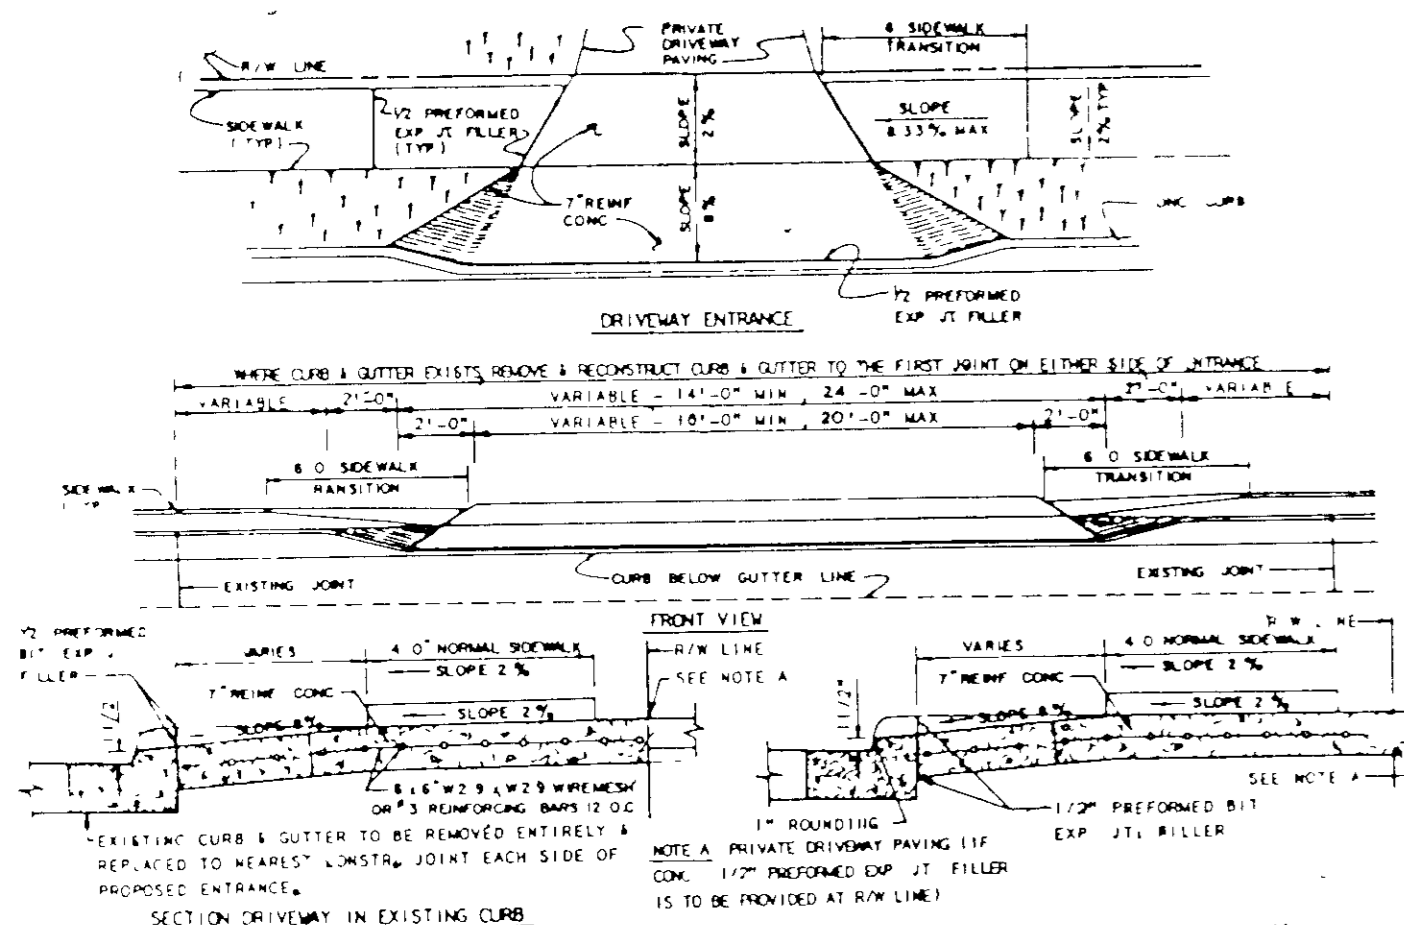 PRIVATE
DRIVEWAY
PAVING
6 SIDEWALK
TRANSITION
R/W LINE
SIDEWALK
(TYP)
1/2 PREFORMED
EXP JT FILLER
(TYP)
SLOPE
2%
SLOPE
8.33% MAX
SLOPE
2% TYP
7" REINF
CONC
SLOPE
8%
CURB
1/2 PREFORMED
EXP JT FILLER
DRIVEWAY ENTRANCE
WHERE CURB & GUTTER EXISTS, REMOVE & RECONSTRUCT CURB & GUTTER TO THE FIRST JOINT ON EITHER SIDE OF ENTRANCE
VARIABLE
2'-0"
VARIABLE - 14'-0" MIN, 24'-0" MAX
2'-0"
VARIABLE
2'-0"
VARIABLE - 10'-0" MIN, 20'-0" MAX
2'-0"
6 0 SIDEWALK
RANSITION
6 0 SIDEWALK
TRANSITION
SIDEWALK
EXISTING JOINT
CURB BELOW GUTTER LINE
EXISTING JOINT
FRONT VIEW
1/2 PREFORMED
BIT EXP J
FILLER
VARIES
4 0" NORMAL SIDEWALK
SLOPE 2%
R/W LINE
SEE NOTE A
7" REINF CONC
SLOPE 8%
SLOPE 2%
1 1/2"
6 x 6" W2 9 x W2 9 WIREMESH
OR #3 REINFORCING BARS 12 O.C
EXISTING CURB & GUTTER TO BE REMOVED ENTIRELY &
REPLACED TO NEAREST CONSTR. JOINT EACH SIDE OF
PROPOSED ENTRANCE.
SECTION DRIVEWAY IN EXISTING CURB
R W LINE
VARIES
4 0 NORMAL SIDEWALK
SLOPE 2%
7" REINF CONC
1 1/2"
SLOPE 8%
SLOPE 2%
SEE NOTE A
1" ROUNDING
1/2" PREFORMED BIT
EXP JT. FILLER
NOTE A PRIVATE DRIVEWAY PAVING (IF
CONC 1/2" PREFORMED EXP JT FILLER
IS TO BE PROVIDED AT R/W LINE)